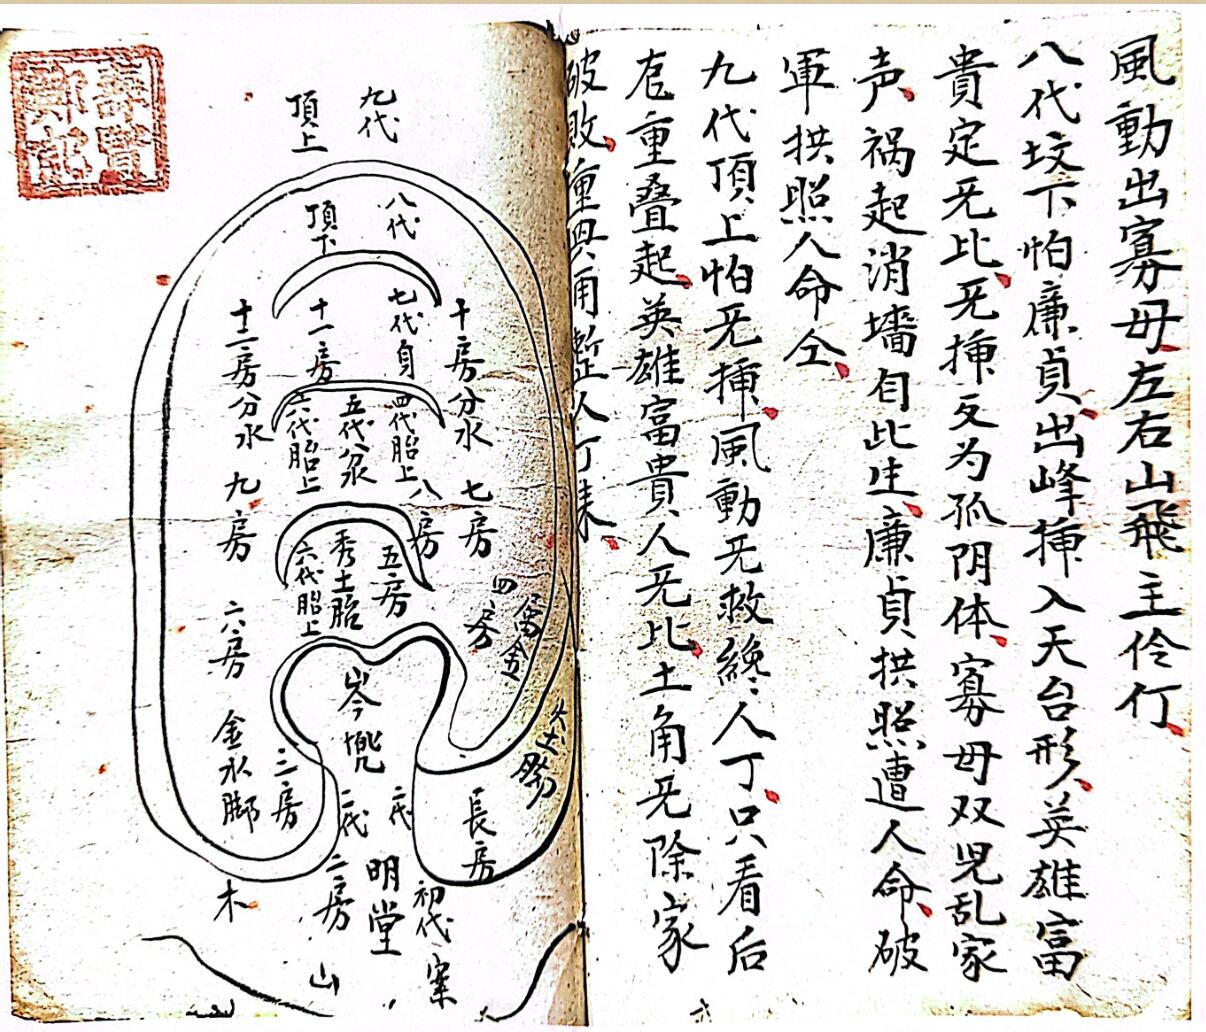 風動出寡母左右山飛主伶仃
八代坟下怕廉貞出峰揷入天台形英雄富
貴定旡比旡揷反为孤阴体寡母双児乱家
声祸起消墻自此生廉貞拱照遭人命破
軍拱照人命仝
九代頂上怕旡揷風動旡救絶人丁只看后
龙重叠起英雄富貴人旡比土角旡除家
破敗
人丁
九代
頂上
八代
頂下
十房分水
七代身
十一房
十二房分水
四代胎上
五代
六代胎上
七房
八房
九房
五房
秀土胎
六代胎上
四房
六房
長房
三房
金水脚
二代
二代
二房
明堂
初代
案
山
木